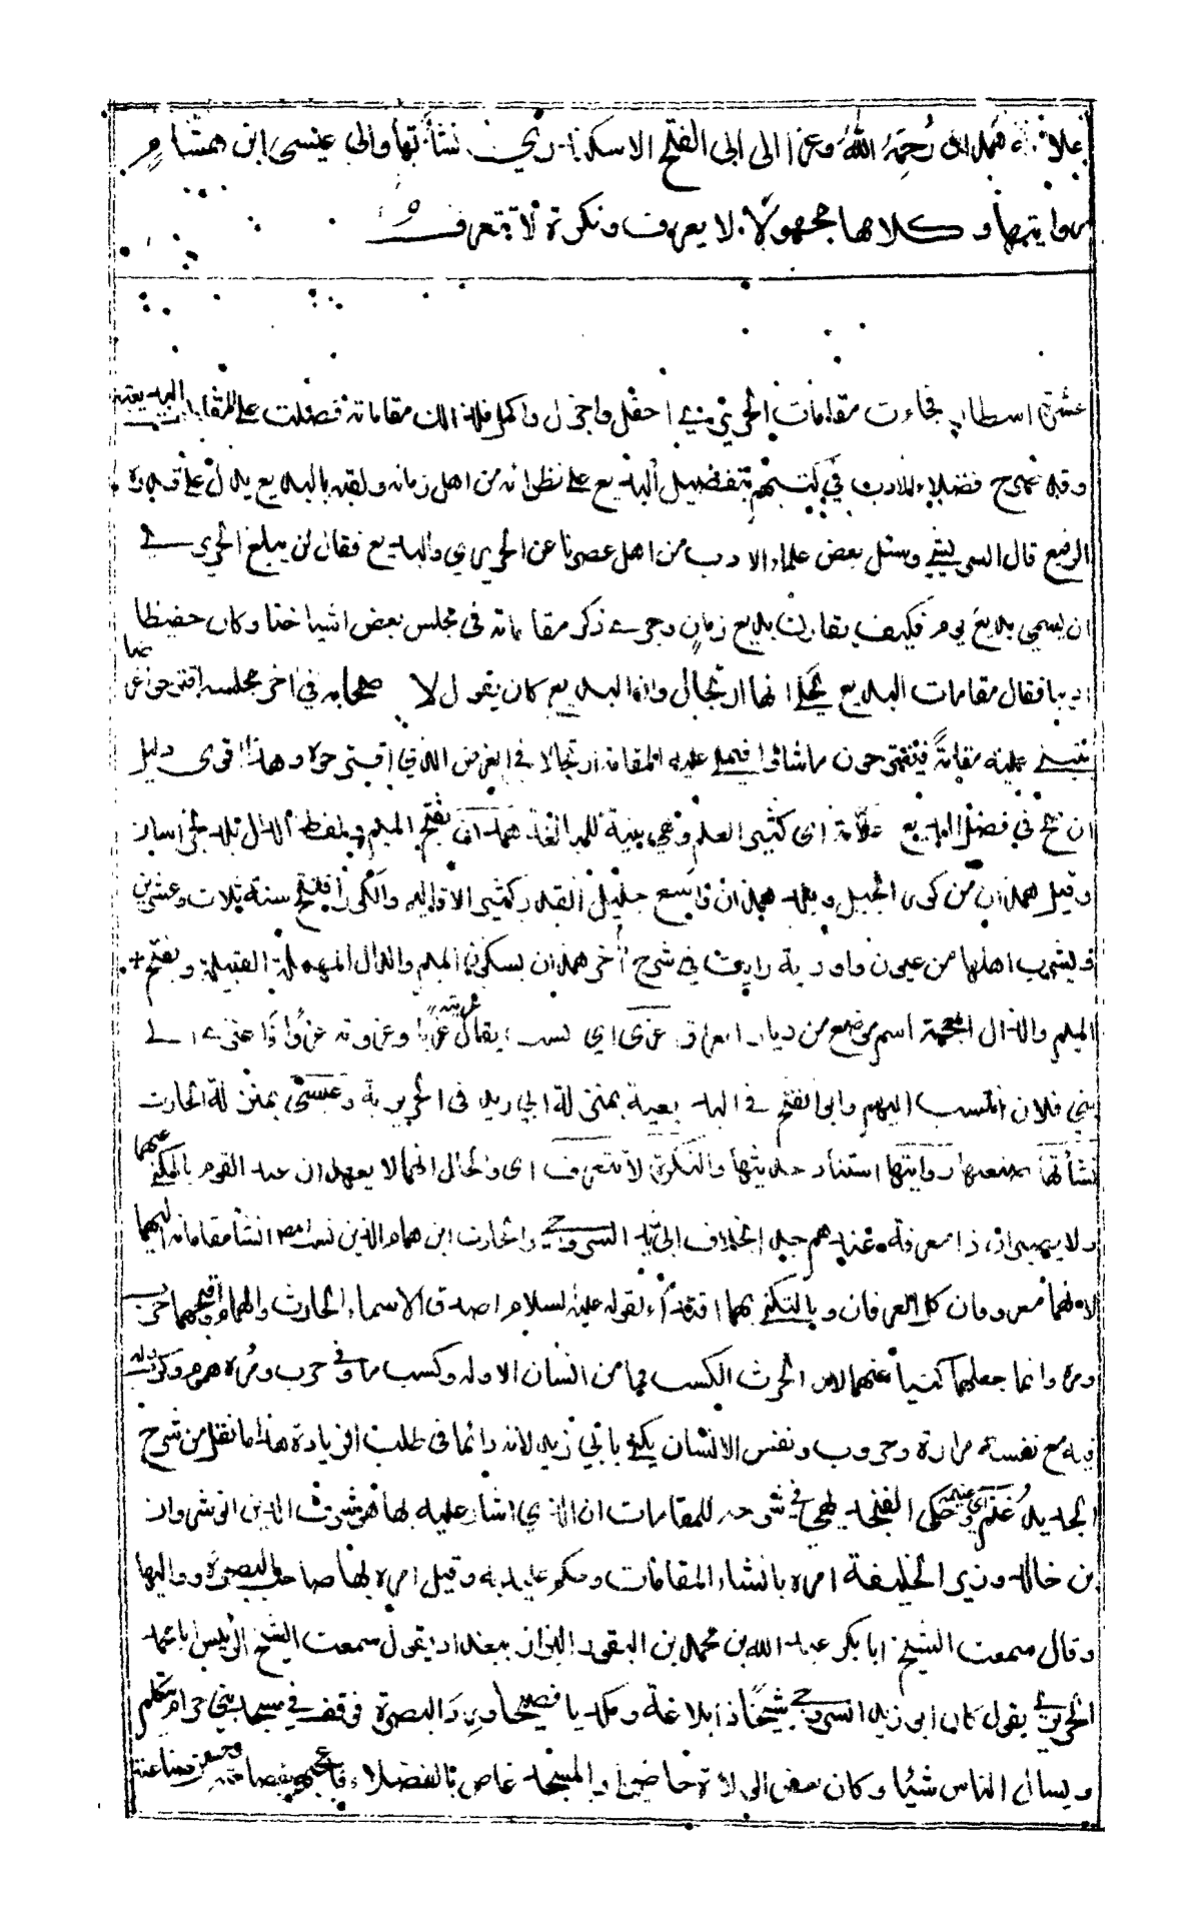 علامة همدان رحمه الله وعزا الى ابى الفتح الاسكندري نشأتها والى عيسى ابن هشام
روايتها وكلاهما مجهول لا يعرف ونكرة لا تتعرف
عشرة اسطار فجاءت مقامات الحريري احفل واجزل واكمل فلذالك مقاماته فضلت على المقامات البديعية
وقد صرح فضلاء الادب في كتبهم بتفضيل البديع على نظرائه من اهل زمانه ولقبه بالبديع يدل على قدره
الرفيع قال الشريشي وسئل بعض علماء الادب من اهل عصرنا عن الحريري والبديع فقال لن يبلغ الحريري
ان يسمى بديع يوم فكيف يقارن بديع زمان وجرى ذكر مقاماته في مجلس بعض اشياخنا وكان حفيظا
اديبا فقال مقامات البديع انها ارتجال وانما البديع كان يقول لاصحابه في اخر مجلسه اقترحوا غرضا
نبني عليه مقامة فيقترحون ما شاؤا فيملي عليهم المقامة ارتجالا في الغرض الذي اقترحوه وهذا اقوى دليل
في فضل البديع علامة اى كثير العلم وهي بنية للمبالغة همدان بفتح الميم
وقيل همدان من كور الجبل وبلد همدان واسع جليل القدر كثير الاقاليم والكور افتتح سنة ثلاث وعشرين
ويشرب اهلها من عيون واودية رايت في شرح أخر همدان بسكون الميم والدال المهملة القبيلة وبفتح
الميم والذال المعجمة اسم موضع من ديار العراق عزى اي نسب يقال عزيته وعزوته عزوا اذا
بني فلان انتسب اليهم وابو الفتح في البديعية بمنزلة ابي زيد في الحريرية وعيسى بمنزلة الحارث
نشأتها صنعتها روايتها استناد حديثها والنكرة لا تتعرف اى والحال انهما لا يعهدان عند القوم بالمكنى عنهما
معرفة عندهم جدا بخلاف ابي زيد السروجي والحارث ابن همام الذين نسب انشأ مقاماته اليهما
لانهما معروفان كل العرفان وبالتكنى بهما اقتداء لقوله عليه السلام اصدق الاسماء الحارث والهمام واقبحهما حرب
ومرة وانما جعلهما كنيا عنهما لان الحرث الكسب فما من انسان الا وله وكسب
فيه مع نفسه مرارة وحروب ونفس الانسان يكنى بابي زيد لانه دائما في طلب الزيادة هذا ما نقل من شرح
الجديد حكى الفنجديهي في شرحه للمقامات ان الذي اشار عليه بها هو شرف الدين انوشروان
بن خالد وزير الخليفة امره بانشاء المقامات وقيل امره بها صاحب البصرة وواليها
وقال سمعت الشيخ ابا بكر عبد الله بن محمد بن النقور البزاز ببغداد يقول سمعت الشيخ الرئيس ابا محمد
الحريري يقول كان ابو زيد السروجي شيخا ذا بلاغة فصيحا ورد البصرة فوقف في مسجد بني حرام يتكلم
ويسال الناس شيئا وكان بعض الولاة حاضرا والمسجد غاص بالفضلاء فاعجبهم بفصاحته وحسن صناعته